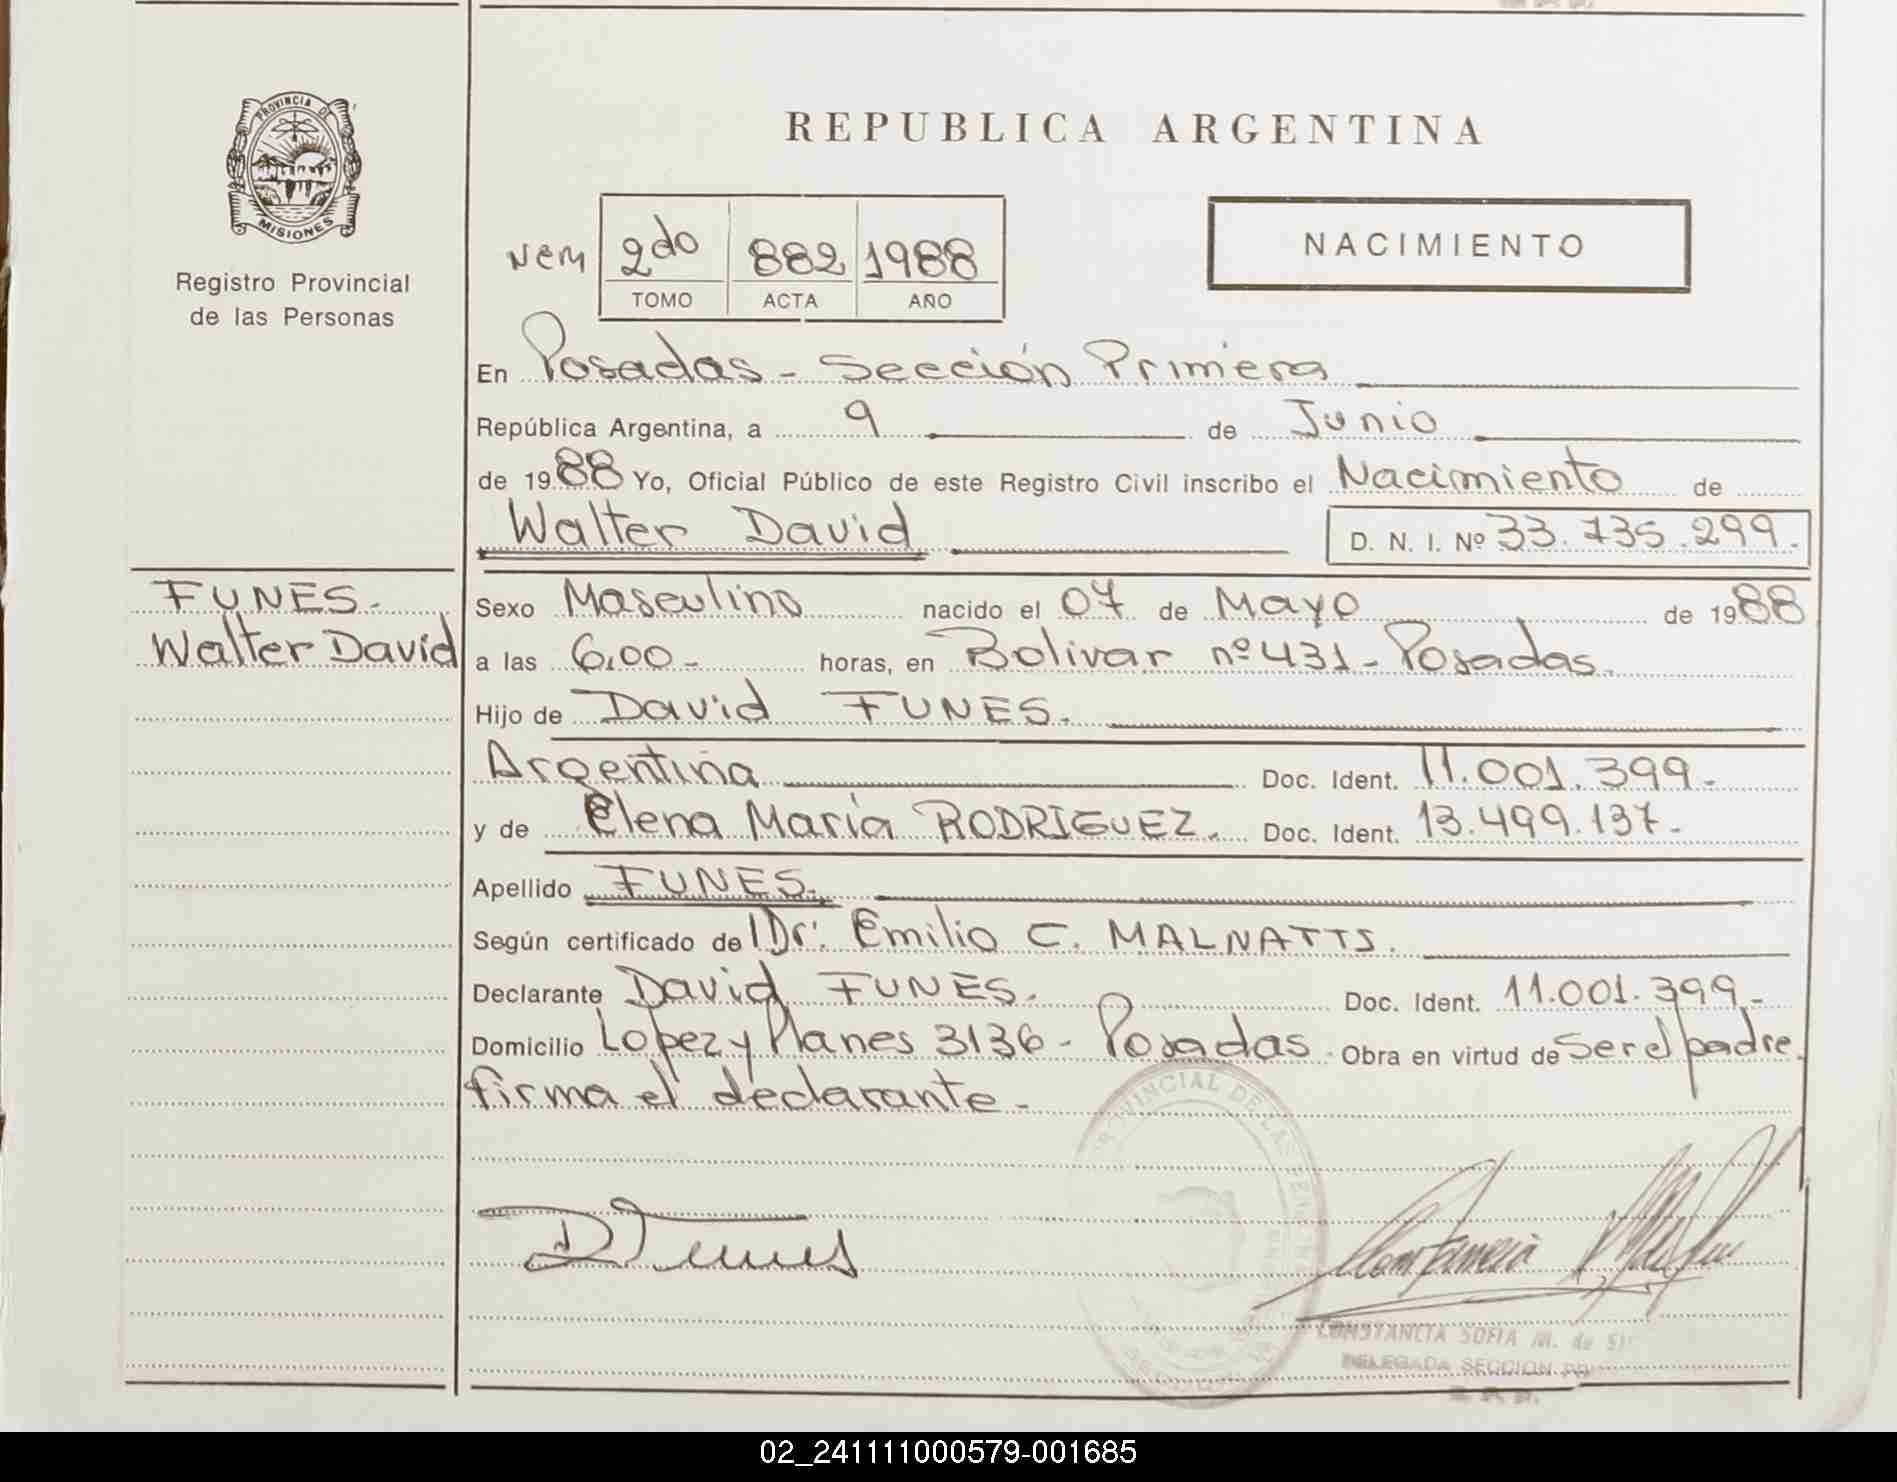 PROVINCIA DE
MISIONES
Registro Provincial
de las Personas
FUNES.
Walter David
REPUBLICA ARGENTINA
NACIMIENTO
2do 882 1988
TOMO ACTA AÑO
En Posadas - Sección Primera
República Argentina, a 9 de Junio
de 1988 Yo, Oficial Público de este Registro Civil inscribo el Nacimiento de
Walter David D. N. I. Nº 33.735.299.
Sexo Masculino nacido el 07 de Mayo de 1988
a las 6,00- horas, en Bolivar nº 431 - Posadas.
Hijo de David FUNES.
Argentina Doc. Ident. 11.001.399-
y de Elena María RODRIGUEZ. Doc. Ident. 13.499.137-
Apellido FUNES.
Según certificado de Dr. Emilio C. MALNATTS.
Declarante David FUNES. Doc. Ident. 11.001.399-
Domicilio Lopez y Planes 3136 - Posadas. Obra en virtud de Ser el padre.
firma el declarante-
D Funes
CONSTANCIA SOFIA M. de
DELEGADA SECCION
02_241111000579-001685